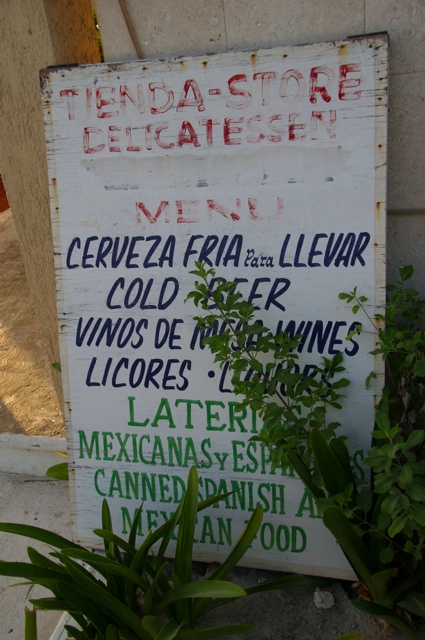 TIENDA-STORE
DELICATESSEN
MENU
CERVEZA FRIA Para LLEVAR
COLD BEER
VINOS DE MESA WINES
LICORES • LIQUORS
LATERIAS
MEXICANAS Y ESPAÑOLAS
CANNED SPANISH AND
MEXICAN FOOD